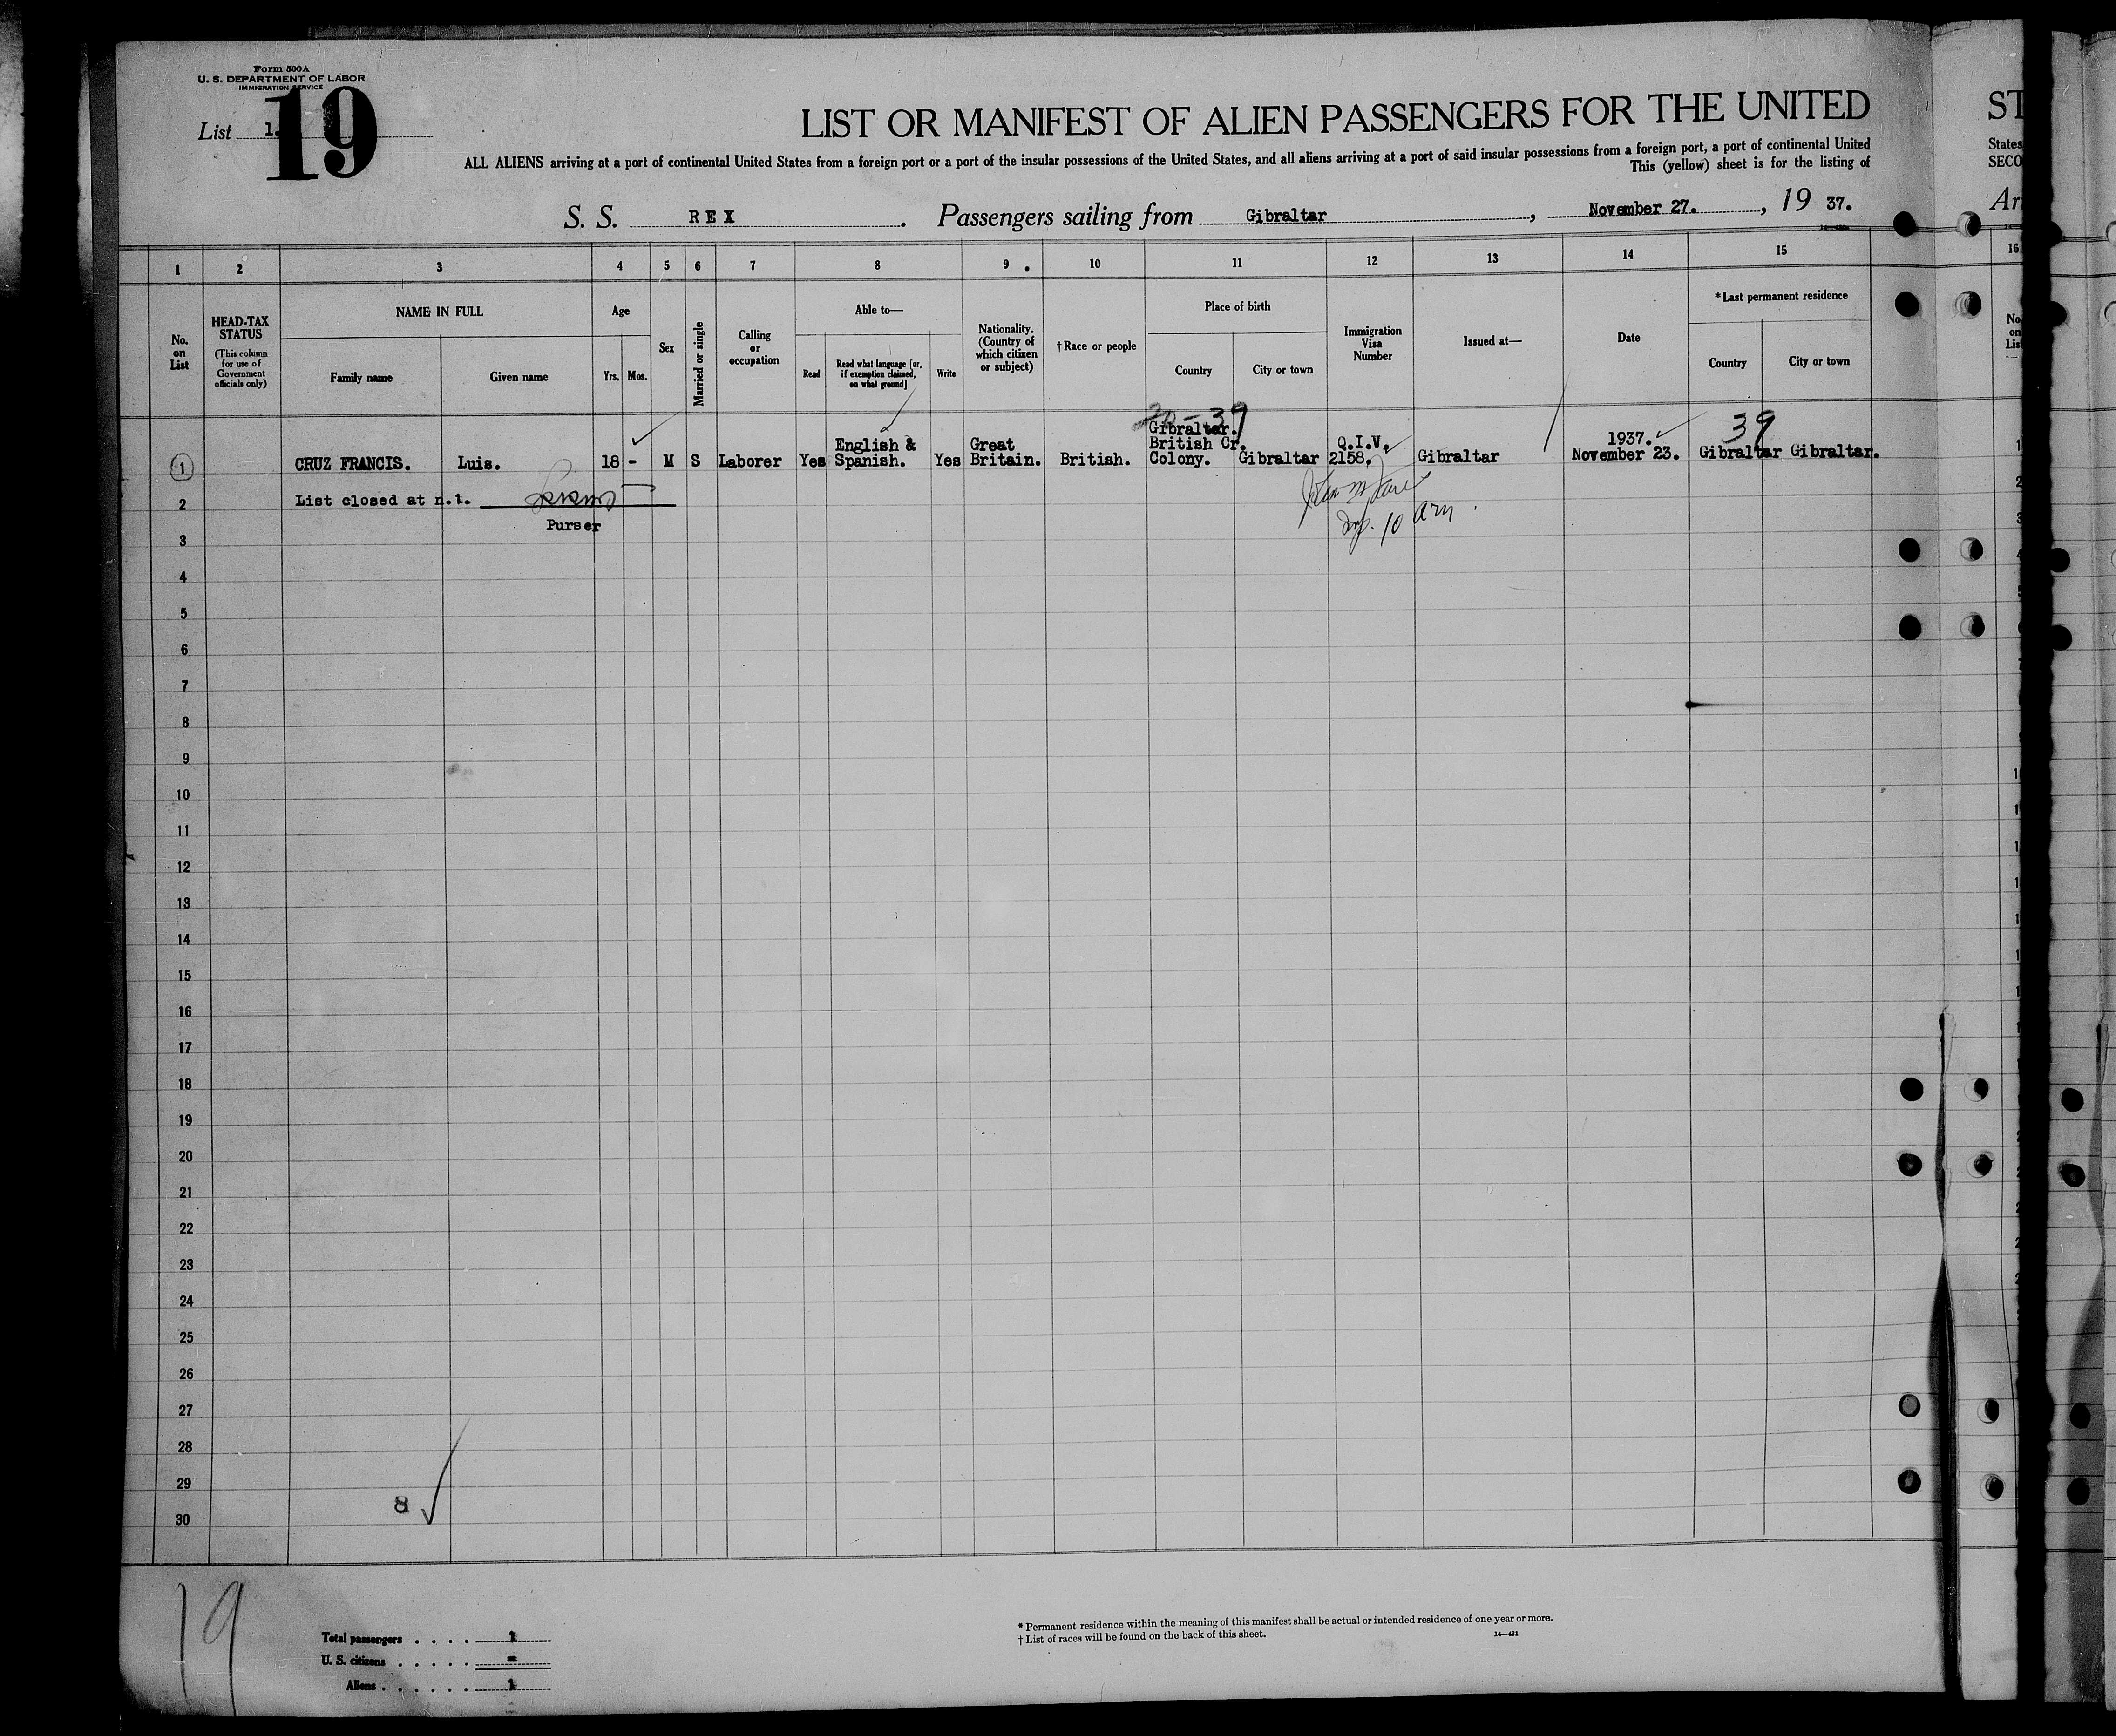 Form 500A
U. S. DEPARTMENT OF LABOR
IMMIGRATION SERVICE
19
List 1.
LIST OR MANIFEST OF ALIEN PASSENGERS FOR THE UNITED
ALL ALIENS arriving at a port of continental United States from a foreign port or a port of the insular possessions of the United States, and all aliens arriving at a port of said insular possessions from a foreign port, a port of continental United
This (yellow) sheet is for the listing of
S. S. REX. Passengers sailing from Gibraltar, November 27., 19 37.
ST
States
SECO
Ar
1 2 3 4 5 6 7 8 9 10 11 12 13 14 15 16
No. on List
HEAD-TAX STATUS
(This column for use of Government officials only)
NAME IN FULL
Family name
Given name
Age
Yrs.
Mos.
Sex
Married or single
Calling or occupation
Able to—
Read
Read what language [or, if exemption claimed, on what ground]
Write
Nationality. (Country of which citizen or subject)
† Race or people
Place of birth
Country
City or town
Immigration Visa Number
Issued at—
Date
*Last permanent residence
Country
City or town
No. on List
39
39
1 CRUZ FRANCIS. Luis. 18 - M S Laborer Yes English & Spanish. Yes Great Britain. British. Gibraltar. British Cr. Colony. Gibraltar Q.I.V. 2158. Gibraltar 1937. November 23. Gibraltar Gibraltar.
2 List closed at n.1.
Purser
10
3
4
5
6
7
8
9
10
11
12
13
14
15
16
17
18
19
20
21
22
23
24
25
26
27
28
29
8
30
19
Total passengers . . . . 1
U. S. citizens . . . . . -
Aliens . . . . . . 1
* Permanent residence within the meaning of this manifest shall be actual or intended residence of one year or more.
† List of races will be found on the back of this sheet.